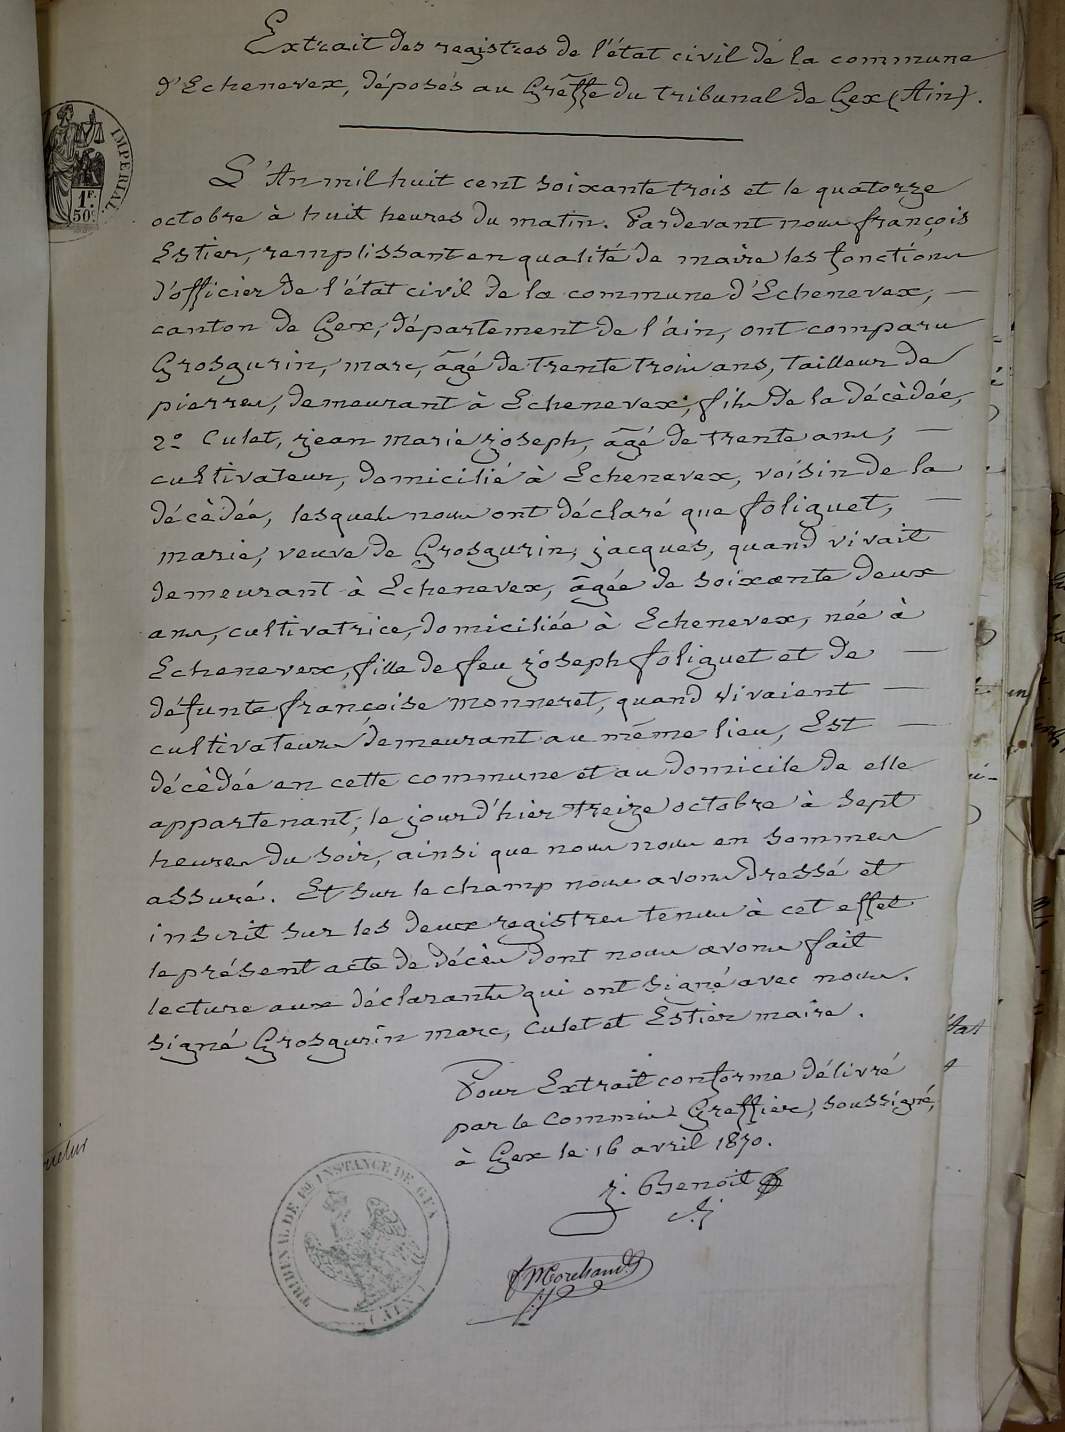 Extrait des registres de l'état civil de la commune
d'Echenevex, déposés au Grêffe du tribunal de Gex (Ain).
IMPERIAL
1F.
50c.
L'An mil huit cent soixante trois et le quatorze
octobre à huit heures du matin. Pardevant nous françois
Estier, remplissant en qualité de maire les fonctions
d'officier de l'état civil de la commune d'Echenevex, —
canton de Gex, département de l'ain, ont comparu
Grosgurin, marc, âgé de trente trois ans, tailleur de
pierres, demeurant à Echenevex, fils de la décèdée,
2º Culet, jean marie joseph, âgé de trente ans, —
cultivateur, domicilié à Echenevex, voisin de la
décèdée, lesquels nous ont déclaré que foliguet, —
marie, veuve de Grosgurin, jacques, quand vivait
demeurant à Echenevex, âgée de soixante deux
ans, cultivatrice, domiciliée à Echenevex, née à
Echenevex, fille de feu joseph foliguet et de —
défunte françoise monneret, quand vivaient —
cultivateurs demeurant au même lieu, Est —
décèdée en cette commune et au domicile de elle
appartenant, le jour d'hier treize octobre à sept
heures du soir, ainsi que nous nous en sommes
assuré. Et sur le champ nous avons dressé et
inscrit sur les deux registres tenus à cet effet
le présent acte de décès dont nous avons fait
lecture aux déclarants qui ont signé avec nous.
signé Grosgurin marc, Culet et Estier maire.
Pour Extrait conforme délivré
par le Commis Greffier, soussigné,
à Gex le 16 avril 1870.
j. Benoit
TRIBUNAL DE 1re INSTANCE DE GEX
(AIN)